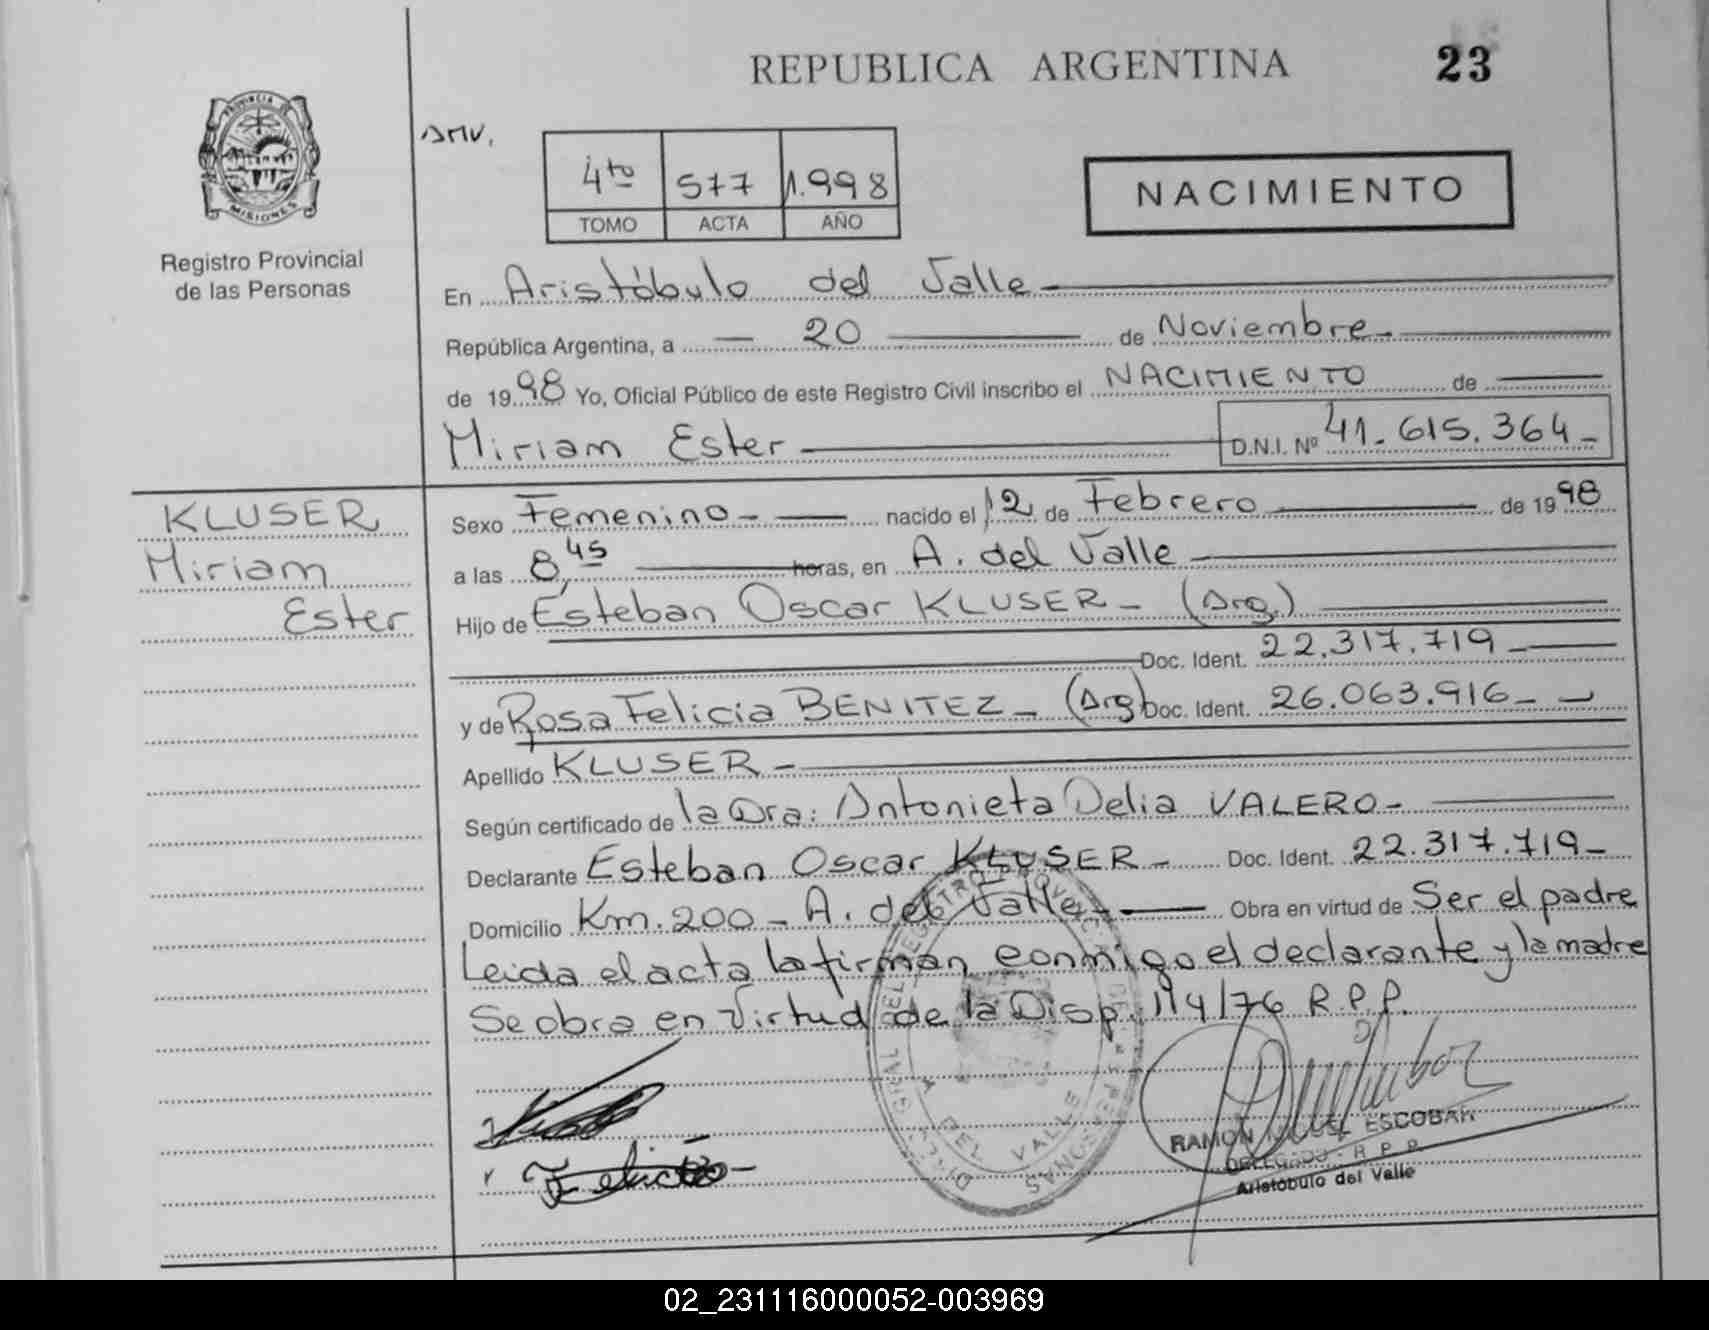 REPUBLICA ARGENTINA
23
PROVINCIA DE
MISIONES
Registro Provincial
de las Personas
4to 577 1.998
TOMO ACTA AÑO
NACIMIENTO
En Aristóbulo del Valle
República Argentina, a 20 de Noviembre
de 1998 Yo, Oficial Público de este Registro Civil inscribo el NACIMIENTO de
Miriam Ester D.N.I. Nº 41.615.364
KLUSER
Miriam
Ester
Sexo Femenino nacido el 12 de Febrero de 1998
a las 8,45 horas, en A. del Valle
Hijo de Esteban Oscar KLUSER (Arg.)
Doc. Ident. 22.317.719
y de Rosa Felicia BENITEZ (Arg) Doc. Ident. 26.063.916
Apellido KLUSER
Según certificado de la Dra: Antonieta Delia VALERO
Declarante Esteban Oscar KLUSER Doc. Ident. 22.317.719
Domicilio Km. 200 - A. del Valle Obra en virtud de Ser el padre
Leida el acta la firman conmigo el declarante y la madre
Se obra en Virtud de la Disp. 114/76 R.P.P.
A. DEL VALLE
RAMON MIGUEL ESCOBAR
DELEGADO - R. P. P.
Aristóbulo del Valle
02_231116000052-003969